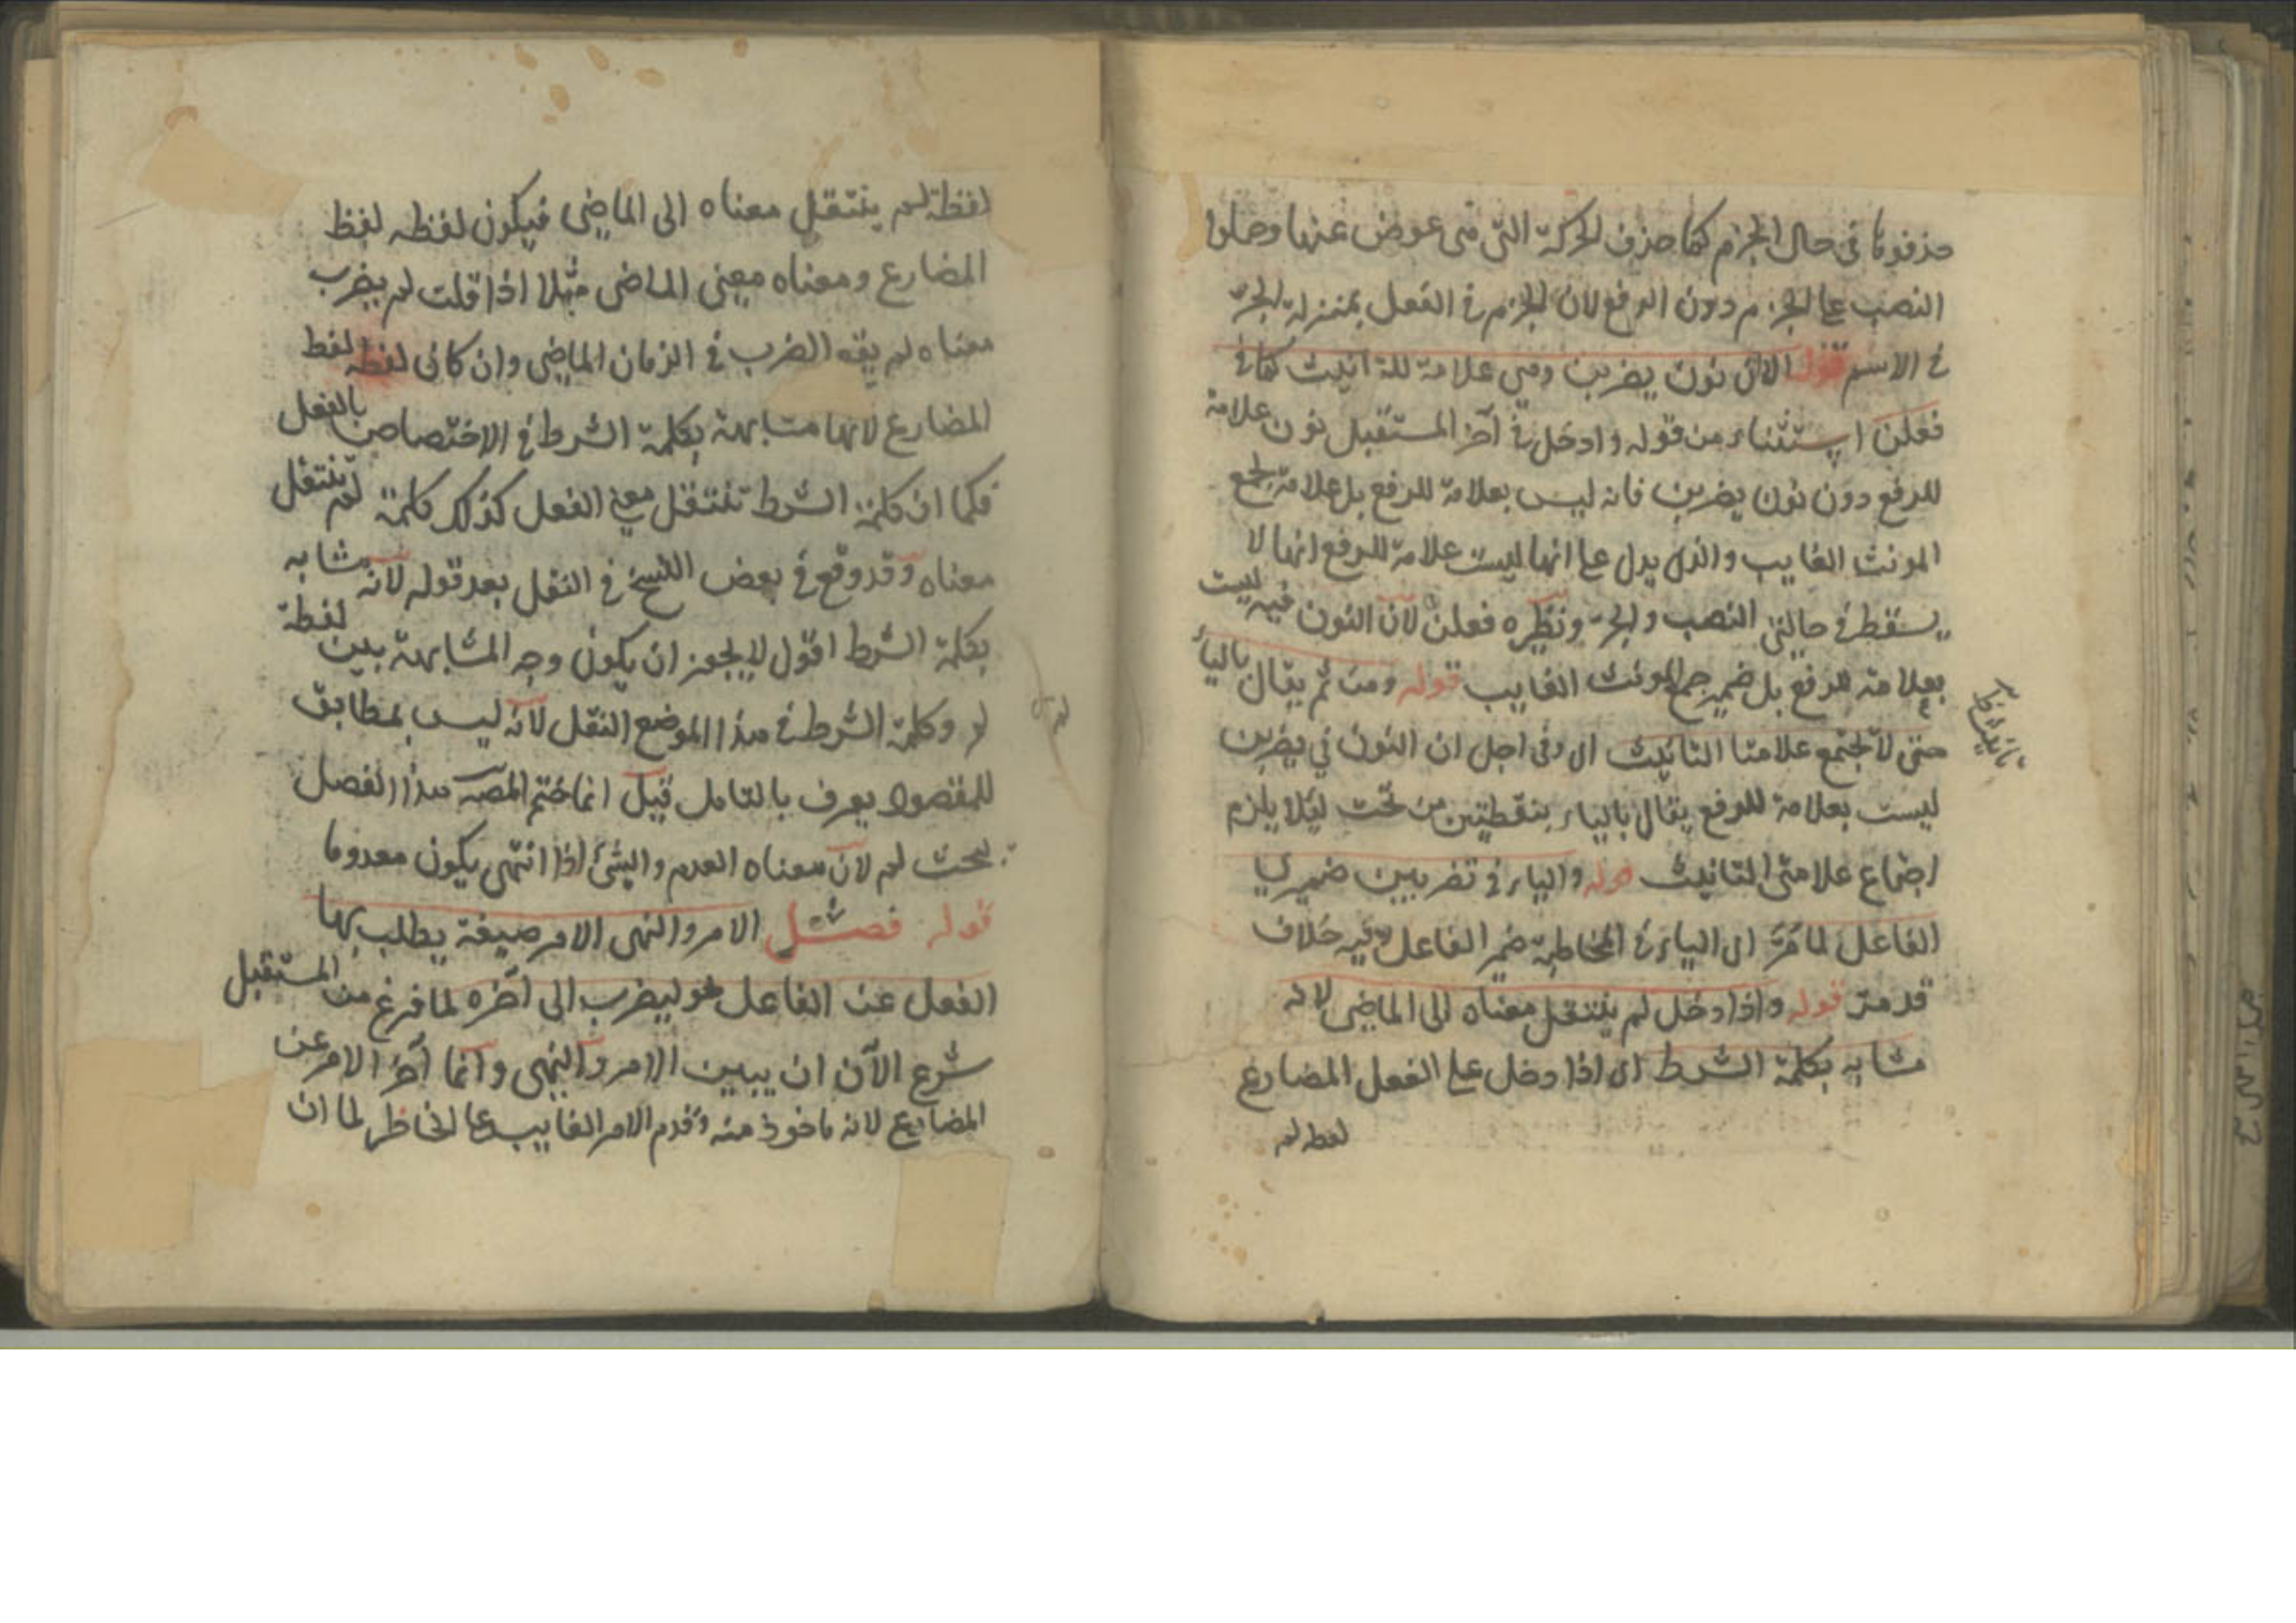 حذفوها فى حال الجزم كما حذف الحركة التى هى عوض عنها وحملوا
النصب على الجزم دون الرفع لان الجزم فى الفعل بمنزلة الجر
فى الاسم قوله الا فى نون يضربن وهى علامة للتانيث كما فى
فعلن استثناء من قوله وادخل فى آخر المستقبل نون علامة
للرفع دون نون يضربن فانه ليس بعلامة للرفع بل علامة لجمع
المونث الغايب والذى يدل على انها ليست علامة للرفع انها لا
يسقط فى حالتى النصب والجر ونظيره فعلن لان النون فيه ليست
بعلامة للرفع بل ضمير جمع المونث الغايب قوله ومن ثم يقال بالياء
حتى لا تجتمع علامتا التانيث اى وفى اجل ان النون فى يضربن
ليست بعلامة للرفع يقال بالياء بنقطتين من تحت ليلا يلزم
اجتماع علامتى التانيث قوله والياء فى تضربين ضمير
الفاعل لما مر اى الياء فى المخاطبة ضمير الفاعل وفيه خلاف
قد مر قوله واذا دخل لم ينتقل معناه الى الماضى لانه
مشابه بكلمة الشرط اى اذا دخل على الفعل المضارع
لفظه لم
لفظة لم ينتقل معناه الى الماضى فيكون لفظه لفظ
المضارع ومعناه معنى الماضى مثلا اذا قلت لم يضرب
معناه لم يقع الضرب فى الزمان الماضى وان كانى لفظه لفظ
المضارع لانها مشابهة بكلمة الشرط فى الاختصاص بالفعل
فكما ان كلمة الشرط تنتقل معنى الفعل كذلك كلمة لم تنتقل
معناه وقد وقع فى بعض النسخ فى النقل بعد قوله لانه مشابه
بكلمة الشرط اقول لا يجوز ان يكون وجه المشابهة بين لفظة
لم وكلمة الشرط فى هذا الموضع النقل لانه ليس بمطابق
للمقصود يعرف بالتامل قيل انما ختم المصـ هذا الفصل
ببحث لم لان معناه العدم والشئ اذا انتهى يكون معدوما
قوله فصل الامر والنهى الامر صيغة يطلب بها
الفعل عن الفاعل نحو ليضرب الى آخره لما فرغ من المستقبل
شرع الآن ان يبين الامر والنهى وانما آخر الامر عن
المضارع لانه ماخوذ منه وقدم الامر الغايب على الحاضر لما ان